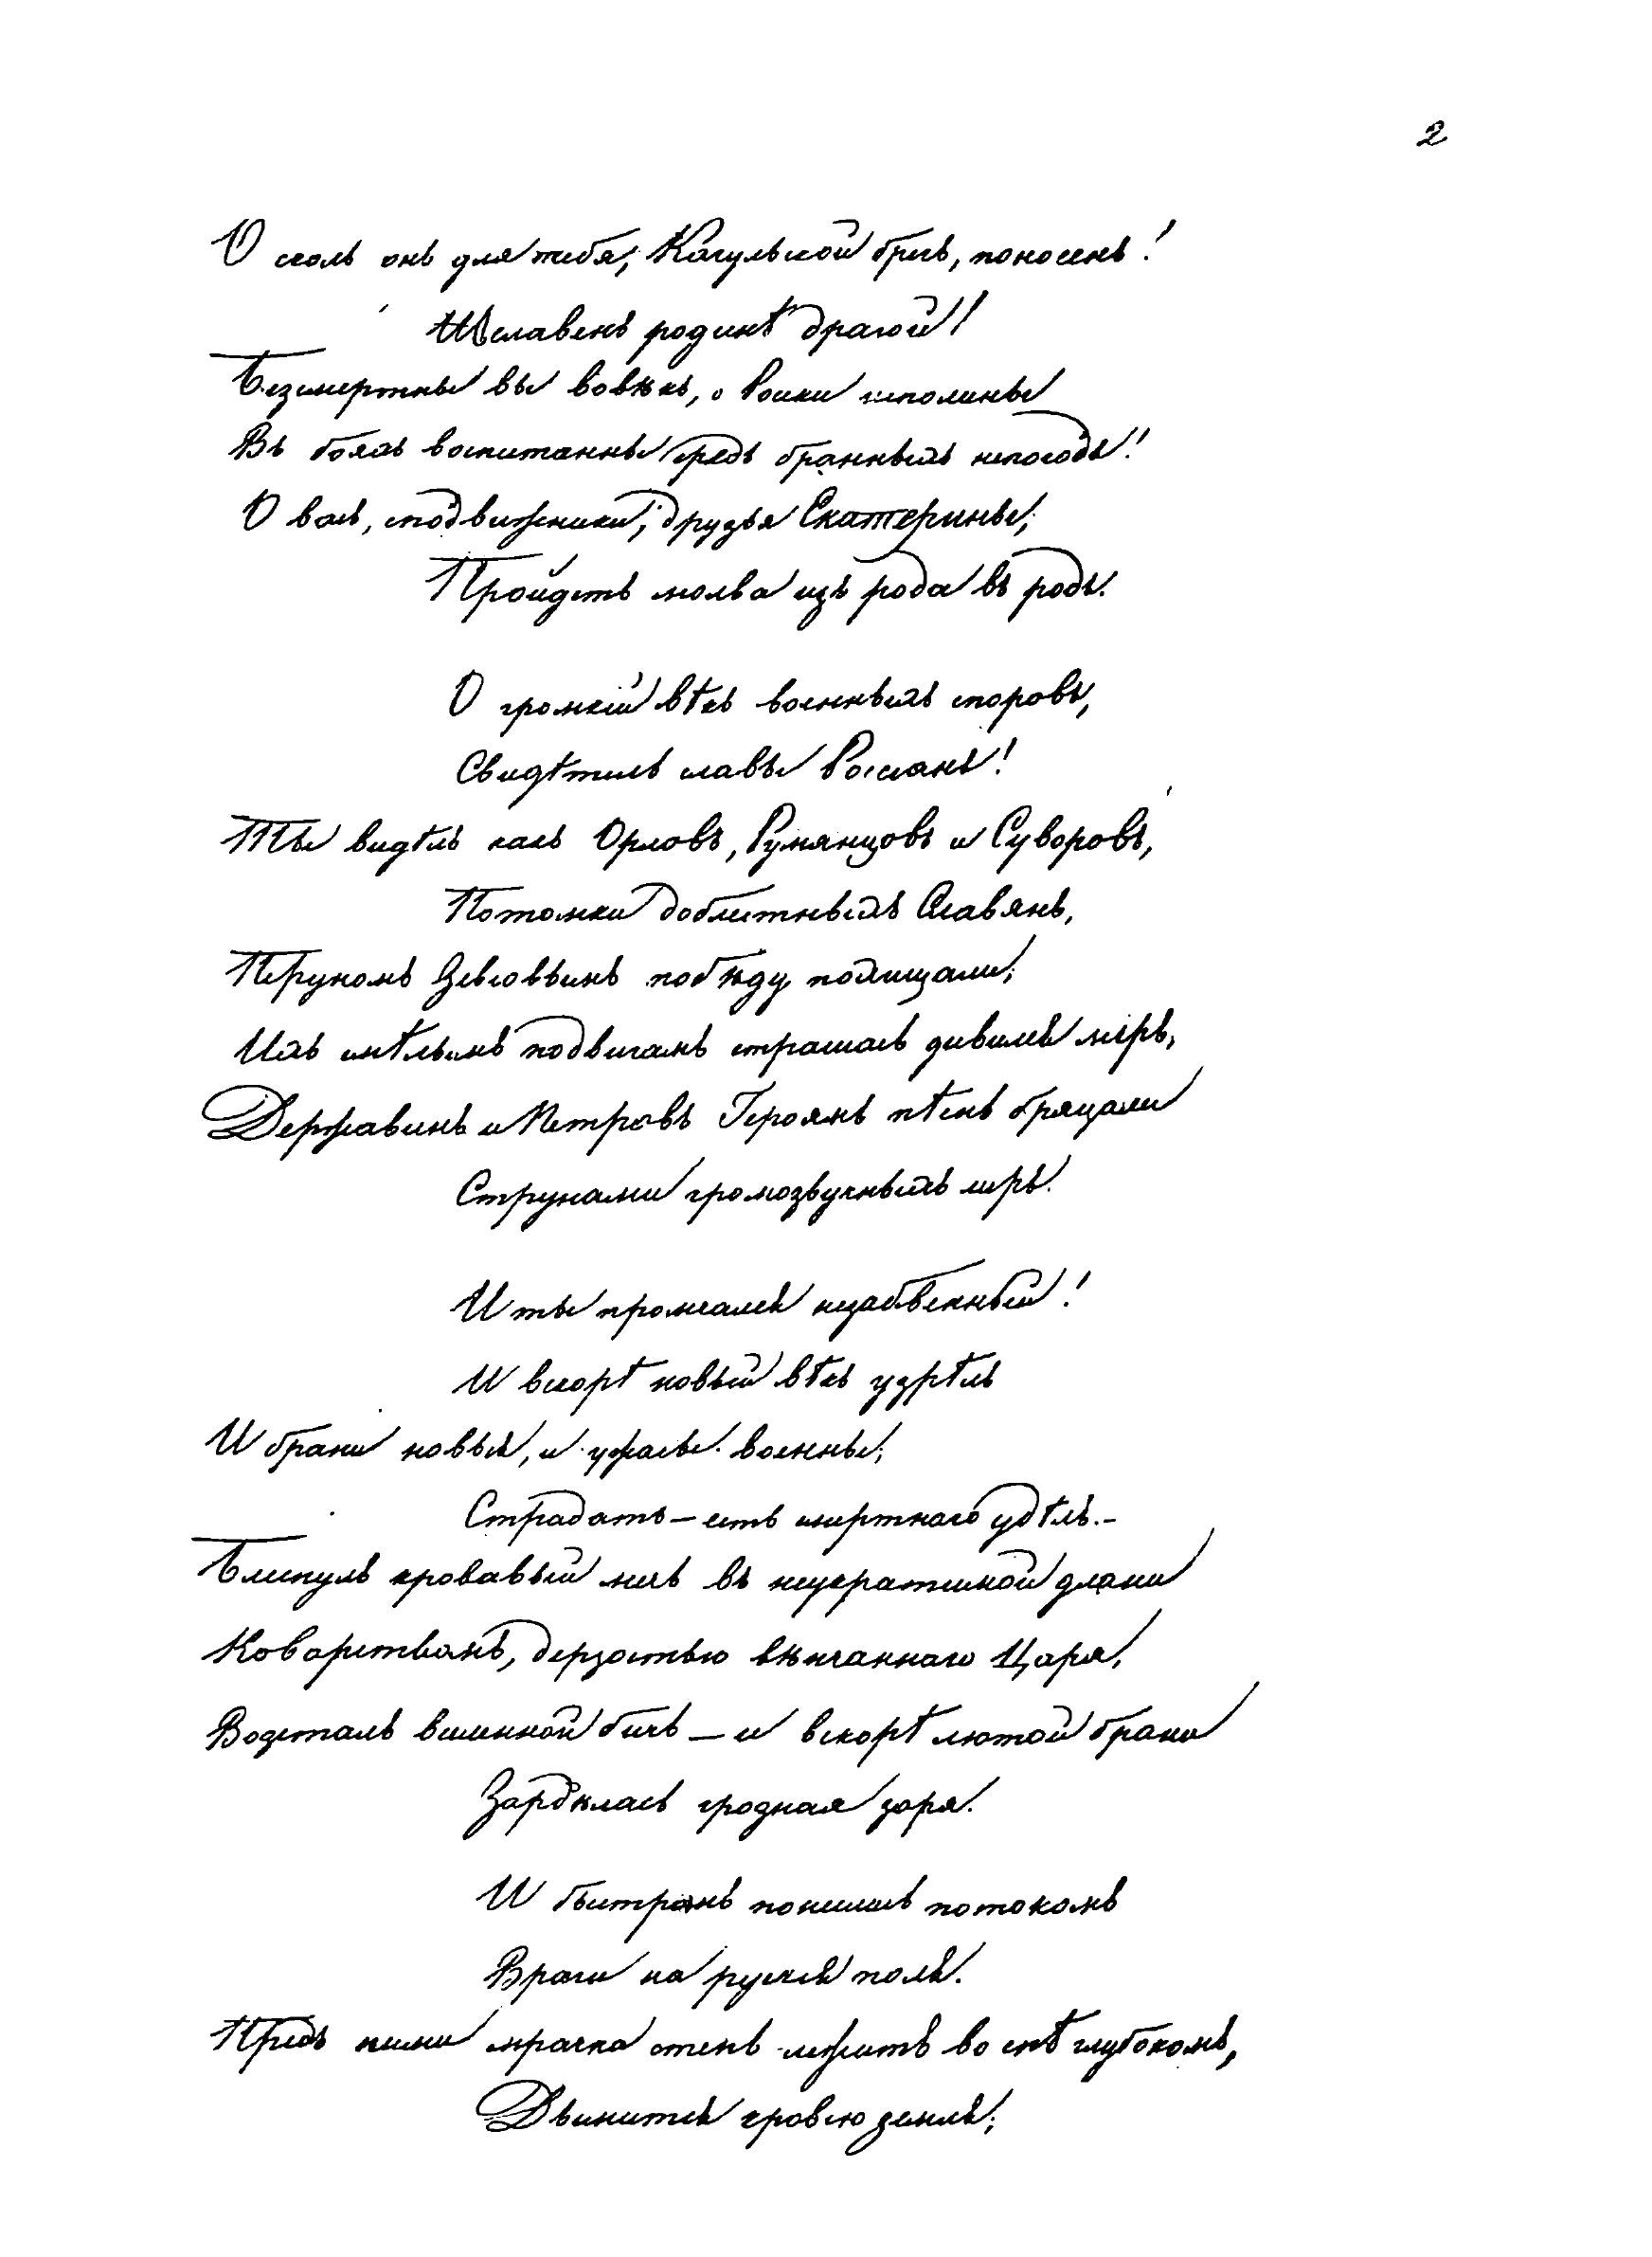 2
О сколь онъ для тебя, Кагульской брегъ, поносенъ!
И славенъ родинѣ драгой!
Безмертны вы вовѣкъ, о Роски исполины
Въ бояхъ воспитанны средь бранныхъ непогодъ!
О васъ, сподвижники, друзья Екатерины,
Пройдетъ молва изъ рода въ родъ.
О громкій вѣкъ военныхъ споровъ,
Свидѣтель славы Россіянъ!
Ты видѣлъ какъ Орловъ, Румянцовъ и Суворовъ,
Потомки доблестныхъ Славянъ,
Перуномъ Зевсовымъ побѣду похищали;
Ихъ смѣлымъ подвигамъ страшась дивился міръ,
Державинъ и Петровъ Героямъ пѣснь бряцали
Струнами громозвучныхъ лиръ.
И ты промчался незабвенный!
И вскорѣ новый вѣкъ узрѣлъ
И брани новыя, и ужасы военны;
Страдать — есть смертнаго удѣлъ. —
Блеснулъ кровавый мечь въ неукротимой длани
Коварствомъ, дерзостью вѣнчаннаго Царя,
Возсталъ вселенной бичь — и вскорѣ лютой брани
Зардѣлась грозная заря.
И быстрымъ понеслись потокомъ
Враги на русскія поля.
Предъ ними мрачна степь лежитъ во снѣ глубокомъ,
Дымится кровію земля;